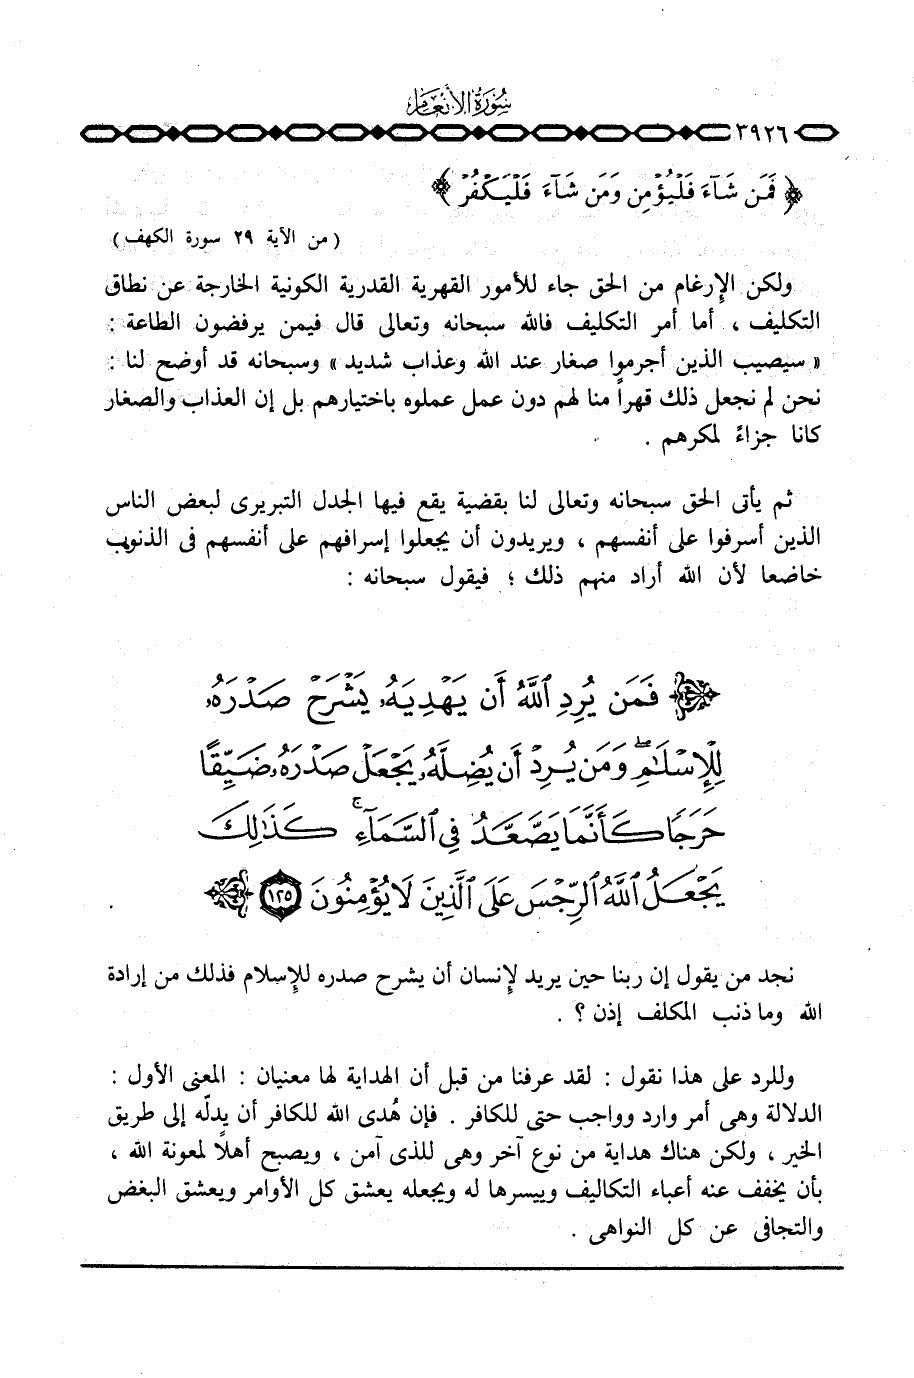 سُورَةُ الأَنْعَام
٣٩٢٦
﴿ فَمَن شَآءَ فَلْيُؤْمِن وَمَن شَآءَ فَلْيَكْفُرْ ﴾
( من الآية ٢٩ سورة الكهف )
ولكن الإرغام من الحق جاء للأمور القهرية القدرية الكونية الخارجة عن نطاق
التكليف ، أما أمر التكليف فالله سبحانه وتعالى قال فيمن يرفضون الطاعة :
« سيصيب الذين أجرموا صغار عند الله وعذاب شديد » وسبحانه قد أوضح لنا :
نحن لم نجعل ذلك قهراً منا لهم دون عمل عملوه باختيارهم بل إن العذاب والصغار
كانا جزاءً لمكرهم .
ثم يأتى الحق سبحانه وتعالى لنا بقضية يقع فيها الجدل التبريرى لبعض الناس
الذين أسرفوا على أنفسهم ، ويريدون أن يجعلوا إسرافهم على أنفسهم فى الذنوب
خاضعا لأن الله أراد منهم ذلك ؛ فيقول سبحانه :
فَمَن يُرِدِ ٱللَّهُ أَن يَهْدِيَهُۥ يَشْرَحْ صَدْرَهُۥ
لِلْإِسْلَٰمِ ۖ وَمَن يُرِدْ أَن يُضِلَّهُۥ يَجْعَلْ صَدْرَهُۥ ضَيِّقًا
حَرَجًا كَأَنَّمَا يَصَّعَّدُ فِى ٱلسَّمَآءِ ۚ كَذَٰلِكَ
يَجْعَلُ ٱللَّهُ ٱلرِّجْسَ عَلَى ٱلَّذِينَ لَا يُؤْمِنُونَ ١٢٥
نجد من يقول إن ربنا حين يريد لإنسان أن يشرح صدره للإسلام فذلك من إرادة
الله وما ذنب المكلف إذن ؟ .
وللرد على هذا نقول : لقد عرفنا من قبل أن الهداية لها معنيان : المعنى الأول :
الدلالة وهى أمر وارد وواجب حتى للكافر . فإن هُدى الله للكافر أن يدلّه إلى طريق
الخير ، ولكن هناك هداية من نوع آخر وهى للذى آمن ، ويصبح أهلاً لمعونة الله ،
بأن يخفف عنه أعباء التكاليف وييسرها له ويجعله يعشق كل الأوامر ويعشق البغض
والتجافى عن كل النواهى .